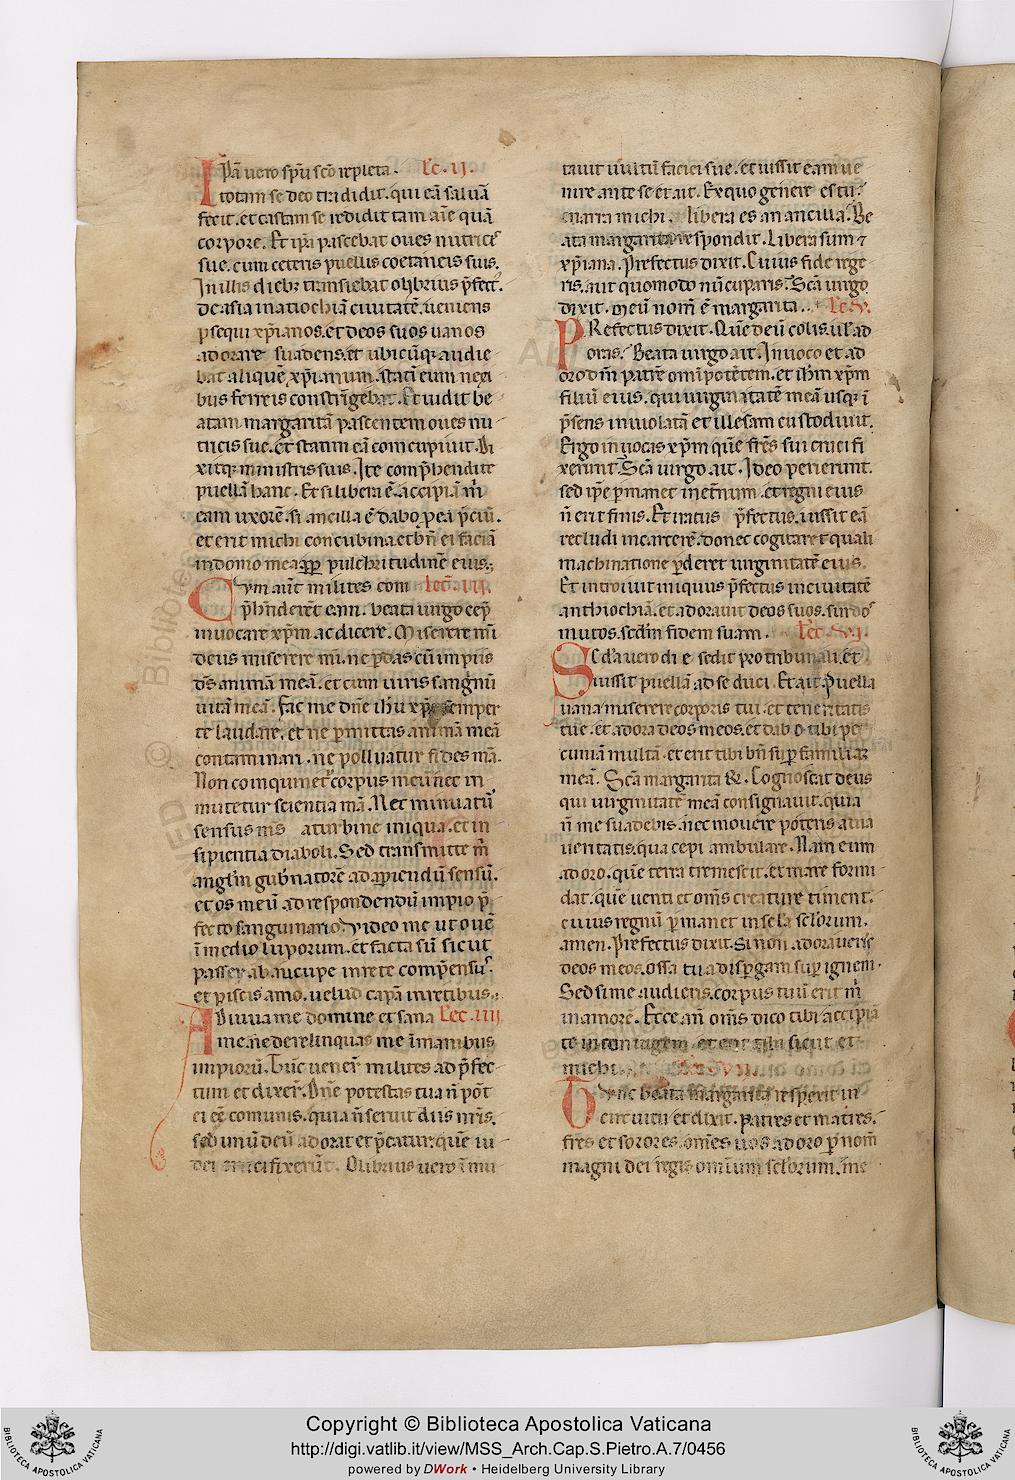 Ip̃a uero sp̃u sc̃o repleta . Lc̃. II.
totam se deo tradidit. qui eã saluã
fecit. et castam se reddidit tam aĩe quã
corpore. Et ip̃a pascebat oues nutrices
sue. cum ceteris puellis coetaneis suis.
In illis dieb; transiebat olibrius p̃fect9.
de asia in atiochiã ciuitatẽ. ueniens
psequi xp̃ianos. et deos suos uanos
adorare suadens. et ubicũq; audie-
bat aliquẽ xp̃ianum. statĩ eum nexi
bus ferreis constrĩgebat. Et uidit be
atam margaritã pascentem oues nu
tricis sue. et statim eã concupiuit. Di
xitq; ministris suis. Ite comp̃hendite
puellã hanc. Et si libera ẽ. accipiã m̃
eam uxorẽ. si ancilla ẽ dabo p ea p̃ciũ.
et erit michi concubina. et bñ ei faciã
in domo mea pp pulchritudinẽ eius.
Cvm aũt milites com Lec̃. III.
p̃hnderẽt eam. beata uirgo cep̃
inuocare xp̃m ac dicere. Miserere mĩ
deus miserere mĩ. ne pdas cũ impiis
ds̃ animã meã. et cum uiris sangnũ
uitã meã. Fac me dñe ih̃u xp̃e semper
te laudare. et ne pmittas animã meã
contaminari. ne polluatur fides mã.
Non coinquinet corpus meũ nec in
mutetur scientia mã. Nec minuatũ
sensus ms̃ a turbine iniqua. et in
sipientia diaboli. Sed transmitte m̃
anglm̃ gubnatorẽ ad apiendũ sensũ.
et os meũ ad respondendũ impio p̃
fecto sanguinario. Video me ut ouẽ
ĩ medio luporum. et facta sũ sicut
passer ab aucupe in rete comp̃ensus.
et piscis amo. uelud capã in retibus.
ADiuua me domine et sana Lec. IIII.
me. ne derelinquas me ĩ manibus
impiorũ. Tũc uener̃ milites ad p̃fec-
tum et dixer̃. Dñe potestas tua ñ põt
ei eẽ comunis. quia ñ seruit diis nr̃is.
sed unũ deũ adorat et p̃catur. quẽ iu-
dei crucifixerũt. Olibrius uero ĩ mu
tauit uultũ faciei sue. et iussit eam ue
nire ante se et ait. Ex quo genere es tu.
enarra michi. libera es an ancilla. Be
ata margarita respondit. Libera sum 7
xp̃iana. Prefectus dixit. Cuius fide rege
ris. aut quomodo nũcuparis. Scã uirgo
dixit. meũ nom̃ ẽ margarita. Lc̃. V.
PRefectus dixit. Quẽ deũ colis. ul' ad
oras. Beata uirgo ait. Inuoco et ad
oro dm̃ patrẽ om̃ipotẽtem. et ih̃m xp̃m
filiũ eius. qui uirginitatẽ meã usq; ĩ
p̃sens inuiolatã et illesam custodiuit.
Ergo inuocas xp̃m quẽ fr̃es sui cruci fi
xerunt. Scã uirgo ait. Ideo perierunt.
sed ip̃e pmanet inet̃num. et regni eius
ñ erit finis. Et iratus p̃fectus. iussit eã
recludi in carcerẽ. donec cogitaret quali
machinatione pderet uirginitatẽ eius.
Et introiuit iniquus p̃fectus in ciuitatẽ
anthiochiã. et adorauit deos suos. surdos
mutos. sedm̃ fidem suam. Lec. VI.
Scd'a uero die sedit pro tribunali. et
iussit puellã ad se duci. Et ait. Puella
uana miserere corporis tui. et teneritatis
tue. et adora deos meos. et dabo tibi pe
cuniam multã. et erit tibi bñ sup familiã
meã. Scã margarita &. Cognoscat deus
qui uirginitatẽ meã consignauit. quia
ñ me suadebis. nec mouere poteris a uia
ueritatis. qua cepi ambulare. Nam eum
adoro. quẽ terra tremescit. et mare formi-
dat. quẽ uenti et om̃s creature timent.
cuius regnũ pmanet in scla sclorum.
amen. Prefectus dixit. Si non adoraueris
deos meos. ossa tua dispgam sup ignem.
Sed si me audieris. corpus tuũ erit m̃
in amorẽ. Ecce añ om̃s dico tibi accipiã
te in coniugem. et erit tibi sicut et
michi. Lec. VII.
Tvnc beata margarita respexit in
circuitu et dixit. Patres et matres.
fr̃es et sorores. om̃es uos adoro p nom̃
magni dei regis omnium sclorum. me
Copyright © Biblioteca Apostolica Vaticana
http://digi.vatlib.it/view/MSS_Arch.Cap.S.Pietro.A.7/0456
powered by DWork • Heidelberg University Library
BIBLIOTECA APOSTOLICA VATICANA
BIBLIOTECA APOSTOLICA VATICANA